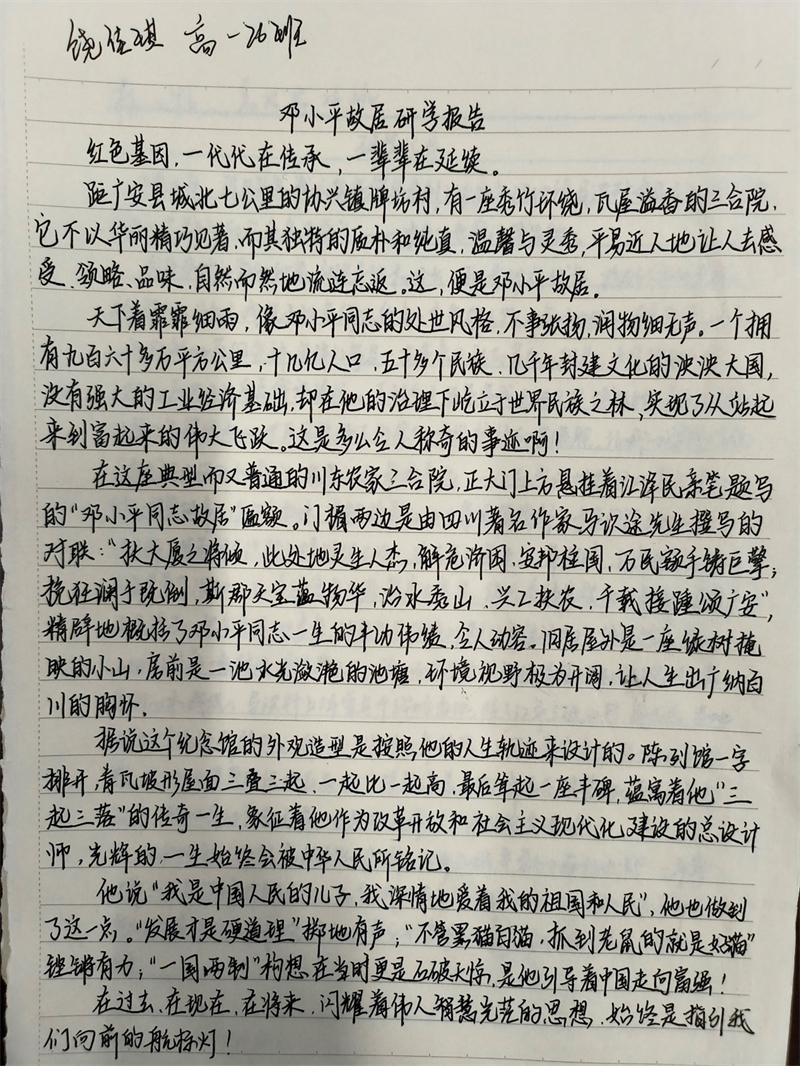 饶佳琪 高一26班
邓小平故居研学报告
红色基因，一代代在传承，一辈辈在延续。
距广安县城北七公里的协兴镇牌坊村，有一座秀竹环绕，瓦屋溢香的三合院，
它不以华丽精巧见著，而其独特的质朴和纯真，温馨与灵秀，平易近人地让人去感
受、领略、品味，自然而然地流连忘返。这，便是邓小平故居。
天下着霏霏细雨，像邓小平同志的处世风格，不事张扬，润物细无声。一个拥
有九百六十多万平方公里，十几亿人口，五十多个民族，几千年封建文化的泱泱大国，
没有强大的工业经济基础，却在他的治理下屹立于世界民族之林，实现了从站起
来到富起来的伟大飞跃。这是多么令人称奇的事迹啊！
在这座典型而又普通的川东农家三合院，正大门上方悬挂着江泽民亲笔题写
的“邓小平同志故居”匾额。门楣两边是由四川著名作家马识途先生撰写的
对联：“扶大厦之将倾，此处地灵生人杰，解危济困，安邦柱国，万民额手铸巨擘；
挽狂澜于既倒，斯郡天宝蕴物华，治水秀山，兴工扶农，千载接踵颂广安”，
精辟地概括了邓小平同志一生的丰功伟绩，令人动容。旧居屋外是一座绿树掩
映的小山，房前是一池水光潋滟的池塘，环境视野极为开阔，让人生出广纳百
川的胸怀。
据说这个纪念馆的外观造型是按照他的人生轨迹来设计的。陈列馆一字
排开，青瓦坡形屋面三叠三起，一起比一起高，最后耸起一座丰碑，蕴寓着他“三
起三落”的传奇一生，象征着他作为改革开放和社会主义现代化建设的总设计
师，光辉的一生始终会被中华人民所铭记。
他说“我是中国人民的儿子，我深情地爱着我的祖国和人民”，他也做到
了这一点。“发展才是硬道理”掷地有声；“不管黑猫白猫，抓到老鼠的就是好猫”
铿锵有力；“一国两制”构想在当时更是石破天惊，是他引导着中国走向富强！
在过去，在现在，在将来，闪耀着伟人智慧光芒的思想，始终是指引我
们向前的航标灯！